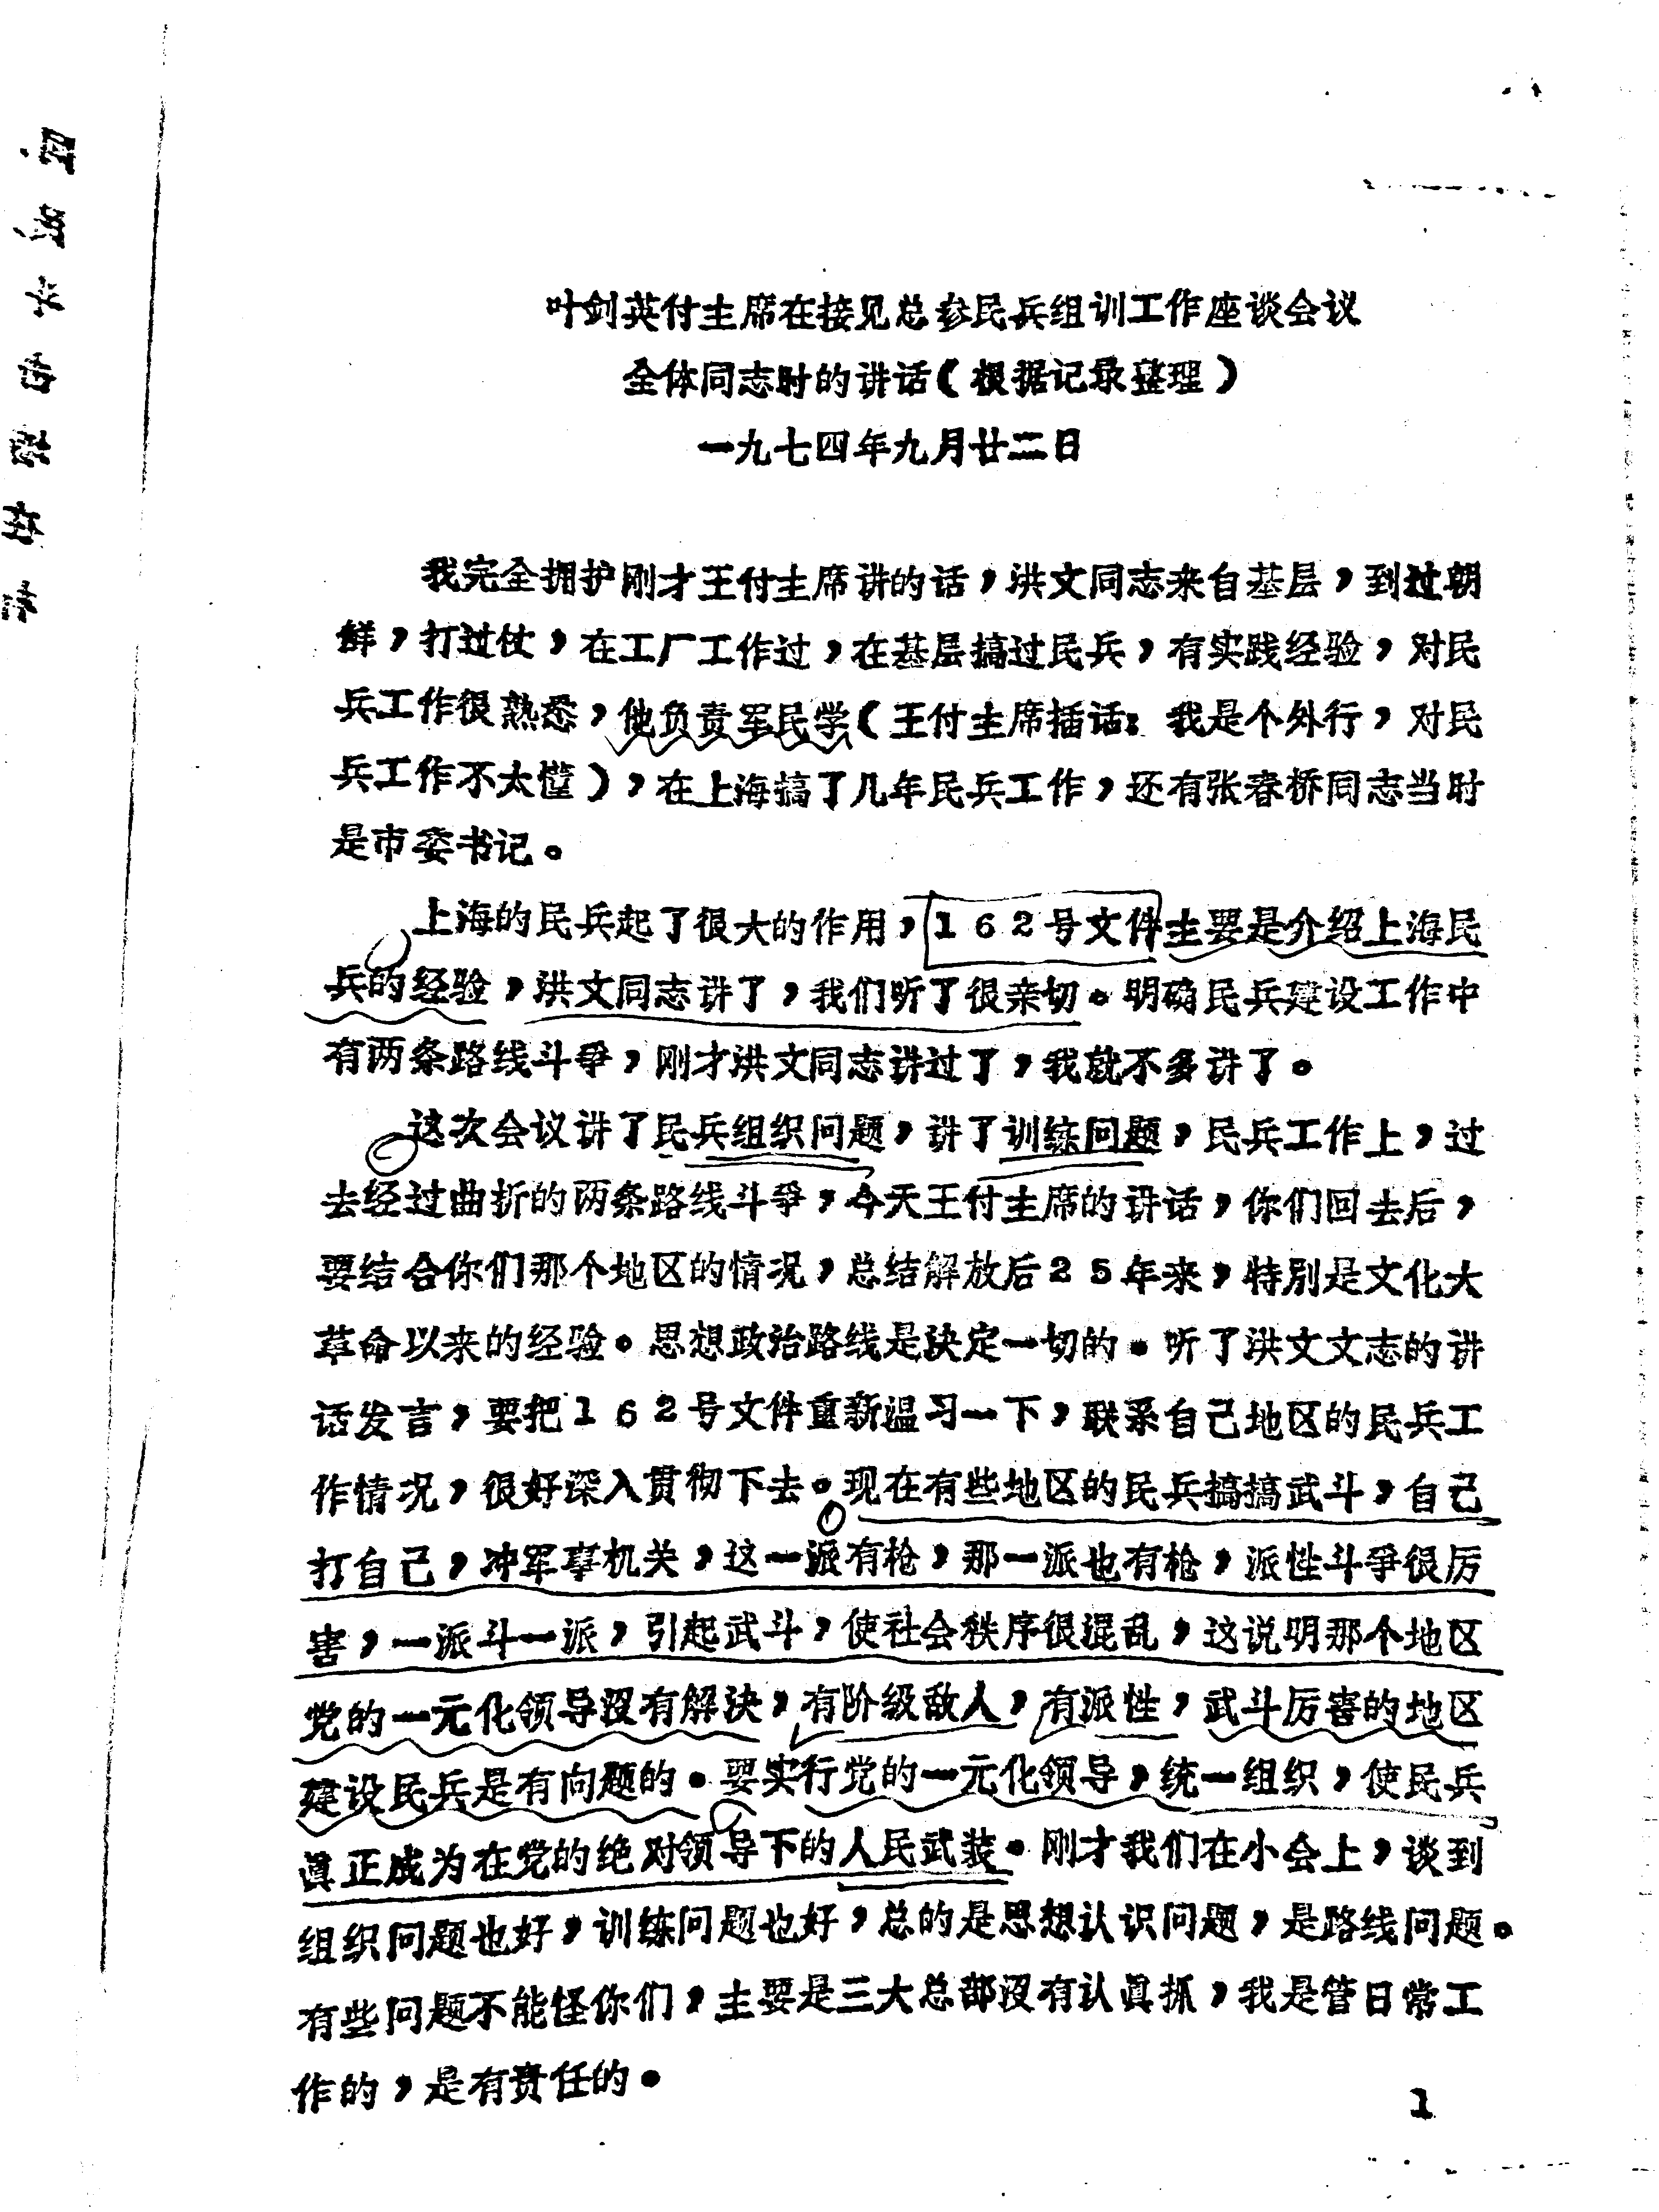 叶剑英付主席在接见总参民兵组训工作座谈会议
全体同志时的讲话（根据记录整理）
一九七四年九月廿二日
我完全拥护刚才王付主席讲的话，洪文同志来自基层，到过朝
鲜，打过仗，在工厂工作过，在基层搞过民兵，有实践经验，对民
兵工作很熟悉，他负责军民学（王付主席插话：我是个外行，对民
兵工作不太懂），在上海搞了几年民兵工作，还有张春桥同志当时
是市委书记。
上海的民兵起了很大的作用，162号文件主要是介绍上海民
兵的经验，洪文同志讲了，我们听了很亲切。明确民兵建设工作中
有两条路线斗爭，刚才洪文同志讲过了，我就不多讲了。
这次会议讲了民兵组织问题，讲了训练问题，民兵工作上，过
去经过曲折的两条路线斗爭，今天王付主席的讲话，你们回去后，
要结合你们那个地区的情况，总结解放后25年来，特别是文化大
革命以来的经验。思想政治路线是决定一切的。听了洪文文志的讲
话发言，要把162号文件重新温习一下，联系自己地区的民兵工
作情况，很好深入贯彻下去。现在有些地区的民兵搞搞武斗，自己
打自己，冲军事机关，这一派有枪，那一派也有枪，派性斗爭很厉
害，一派斗一派，引起武斗，使社会秩序很混乱，这说明那个地区
党的一元化领导没有解决，有阶级敌人，有派性，武斗厉害的地区
建设民兵是有问题的。要实行党的一元化领导，统一组织，使民兵
眞正成为在党的绝对领导下的人民武装。刚才我们在小会上，谈到
组织问题也好，训练问题也好，总的是思想认识问题，是路线问题。
有些问题不能怪你们，主要是三大总部没有认眞抓，我是管日常工
作的，是有责任的。
1